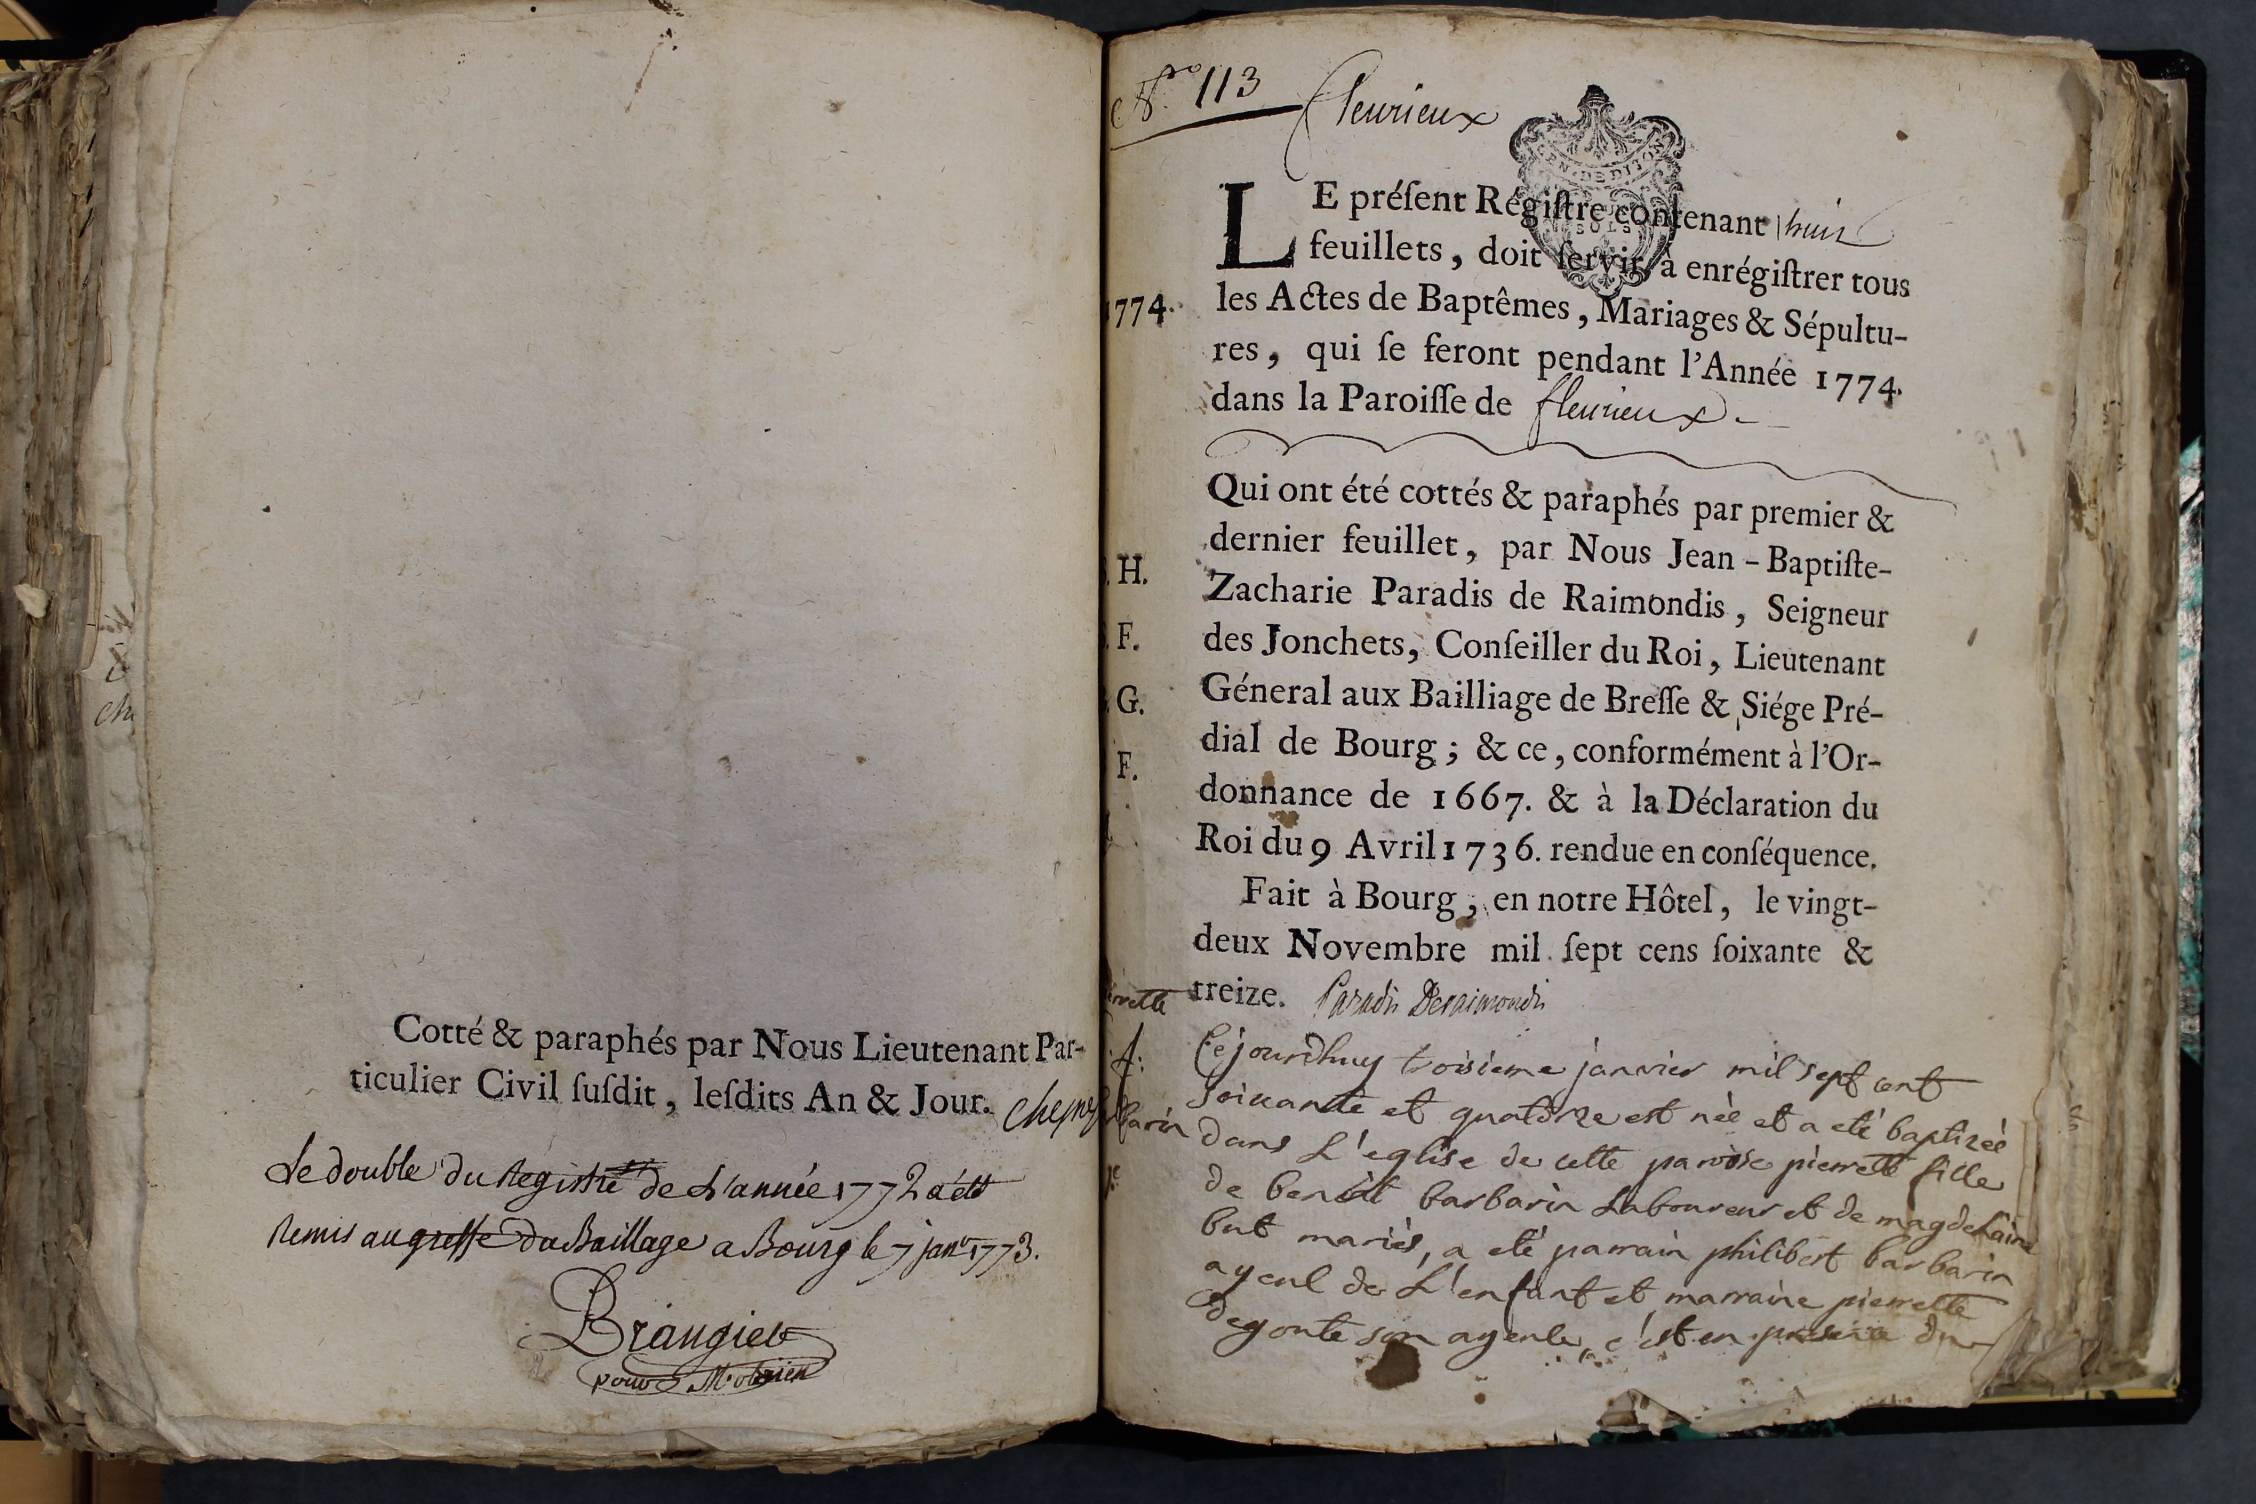 Cotté & paraphés par Nous Lieutenant Par-
ticulier Civil ſuſdit, leſdits An & Jour.
Le double du Registre de L'année 1772 a été
Remis au greffe du Baillage a Bourg le 7 janv. 1773.
Brangier
pour M.
N.º 113 fleurieux
GEN. DE DIJON
SOLS
LE préſent Régiſtre contenant huit
feuillets, doit ſervir à enrégiſtrer tous
1774. les Actes de Baptêmes, Mariages & Sépultu-
res, qui ſe feront pendant l'Année 1774.
dans la Paroiſſe de fleurieux.
Qui ont été cottés & paraphés par premier &
dernier feuillet, par Nous Jean-Baptiſte-
H. Zacharie Paradis de Raimondis, Seigneur
F. des Jonchets, Conſeiller du Roi, Lieutenant
G. Géneral aux Bailliage de Breſſe & Siége Pré-
F. dial de Bourg; & ce, conformément à l'Or-
donnance de 1667. & à la Déclaration du
Roi du 9 Avril 1736. rendue en conſéquence.
Fait à Bourg, en notre Hôtel, le vingt-
deux Novembre mil ſept cens ſoixante &
treize. Paradis Deraimondis
Cejourdhuy troisieme janvier mil sept cent
soixante et quatorze est née et a eté baptizée
dans L'eglise de cette paroise pierrette fille
de benoit barbarin Laboureur et de magdelaine
but mariés, a eté parrain philibert barbarin
ayeul de L'enfant et marraine pierrette
degoute son ayeule, c'est en presence du